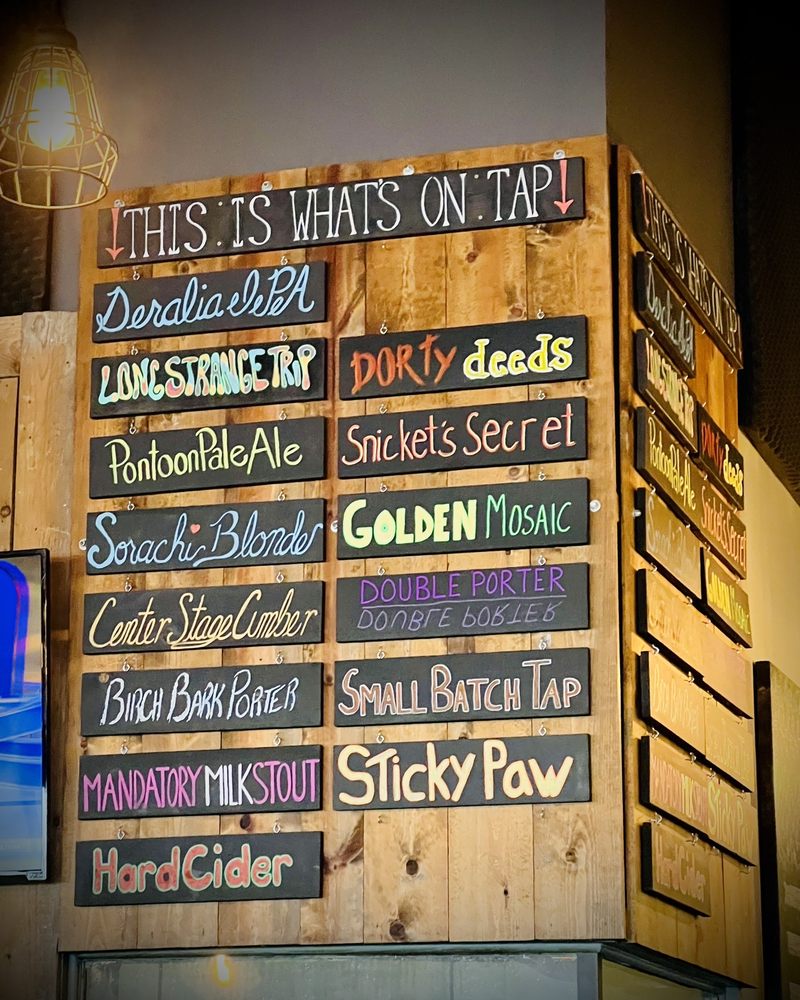 THIS IS WHAT'S ON TAP
Deralia IPA
LONG STRANGE TRIP
Pontoon Pale Ale
Sorachi Blonde
Center Stage Amber
BIRCH BARK PORTER
MANDATORY MILK STOUT
Hard Cider
DORTY deeds
Snicket's Secret
GOLDEN MOSAIC
DOUBLE PORTER
DOUBLE PORTER
SMALL BATCH TAP
Sticky Paw
THIS IS WHAT'S ON TAP
Deralia IPA
LONG STRANGE TRIP
DORTY deeds
Pontoon Pale Ale
Snicket's Secret
GOLDEN MOSAIC
Hard Cider